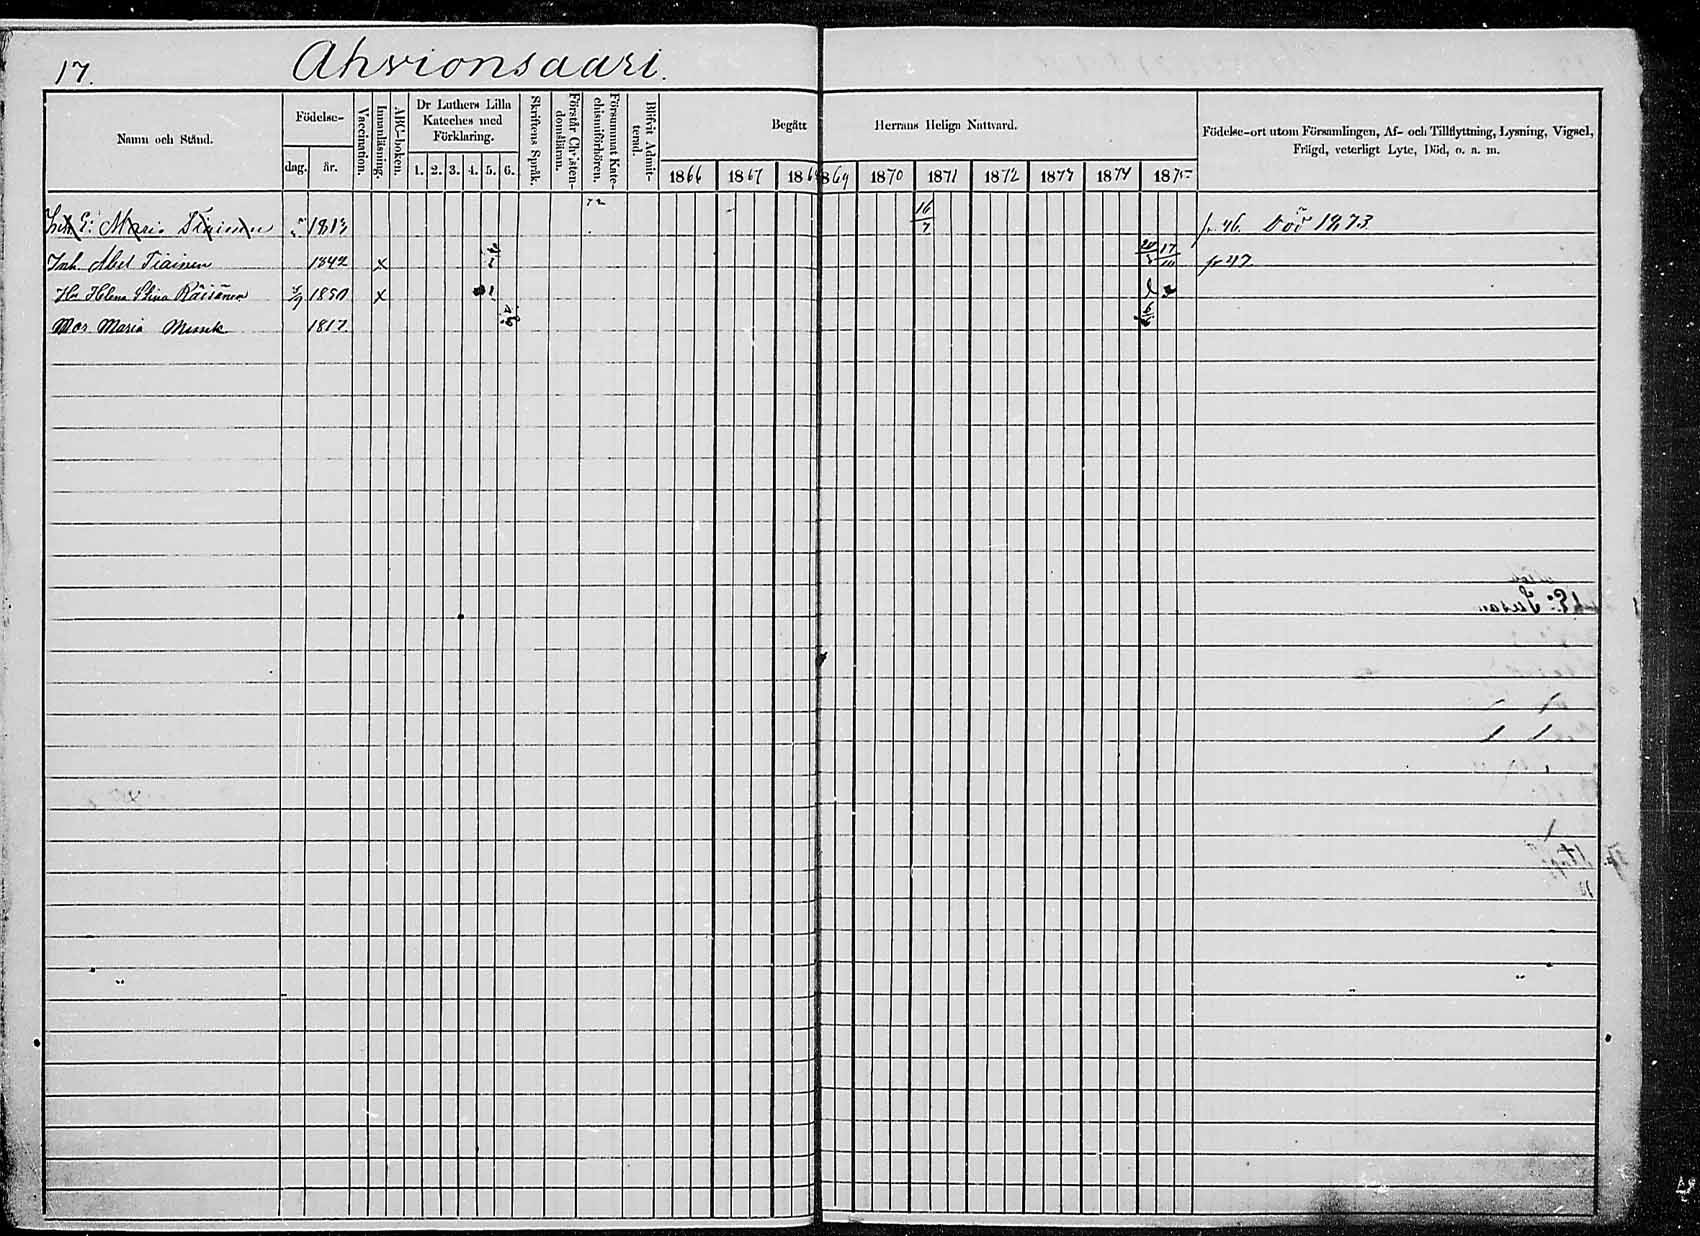 17. Ahvionsaari.
Namn och Stånd.
Födelse-
dag. år.
Vaccination.
Innanläsning.
ABC-boken.
Dr Luthers Lilla
Kateches med
Förklaring.
1. 2. 3. 4. 5. 6.
Skriftens Språk.
Förstår Christen-
domsläran.
Försummat Kate-
chismiförhören.
Blifvit Admit-
terad.
Begått Herrans Heliga Nattvard.
1866 1867 1868 1869 1870 1871 1872 1873 1874 1875
Födelse-ort utom Församlingen, Af- och Tillflyttning, Lysning, Vigsel,
Frägd, veterligt Lyte, Död, o. a. m.
72
Maria Tiainen 1813 16/7 p 46. Död 1873
Inh. Abel Tiainen 1842 x 17/10 p 47
Hu Helena Stina Räisänen 1850 x
Mor Maria Munk 1817